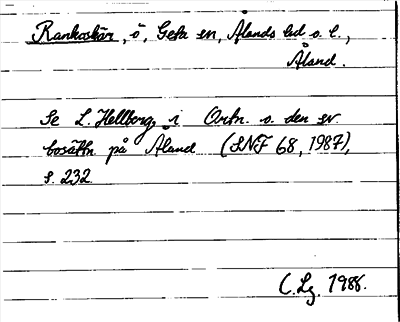 Rankoskär, ö, Geta sn, Ålands lad s. l.,
Åland.
Se L. Hellberg i Ortn. o. den sv.
bosättn på Åland (SNF 68, 1987),
s. 232.
C. Lg. 1988.